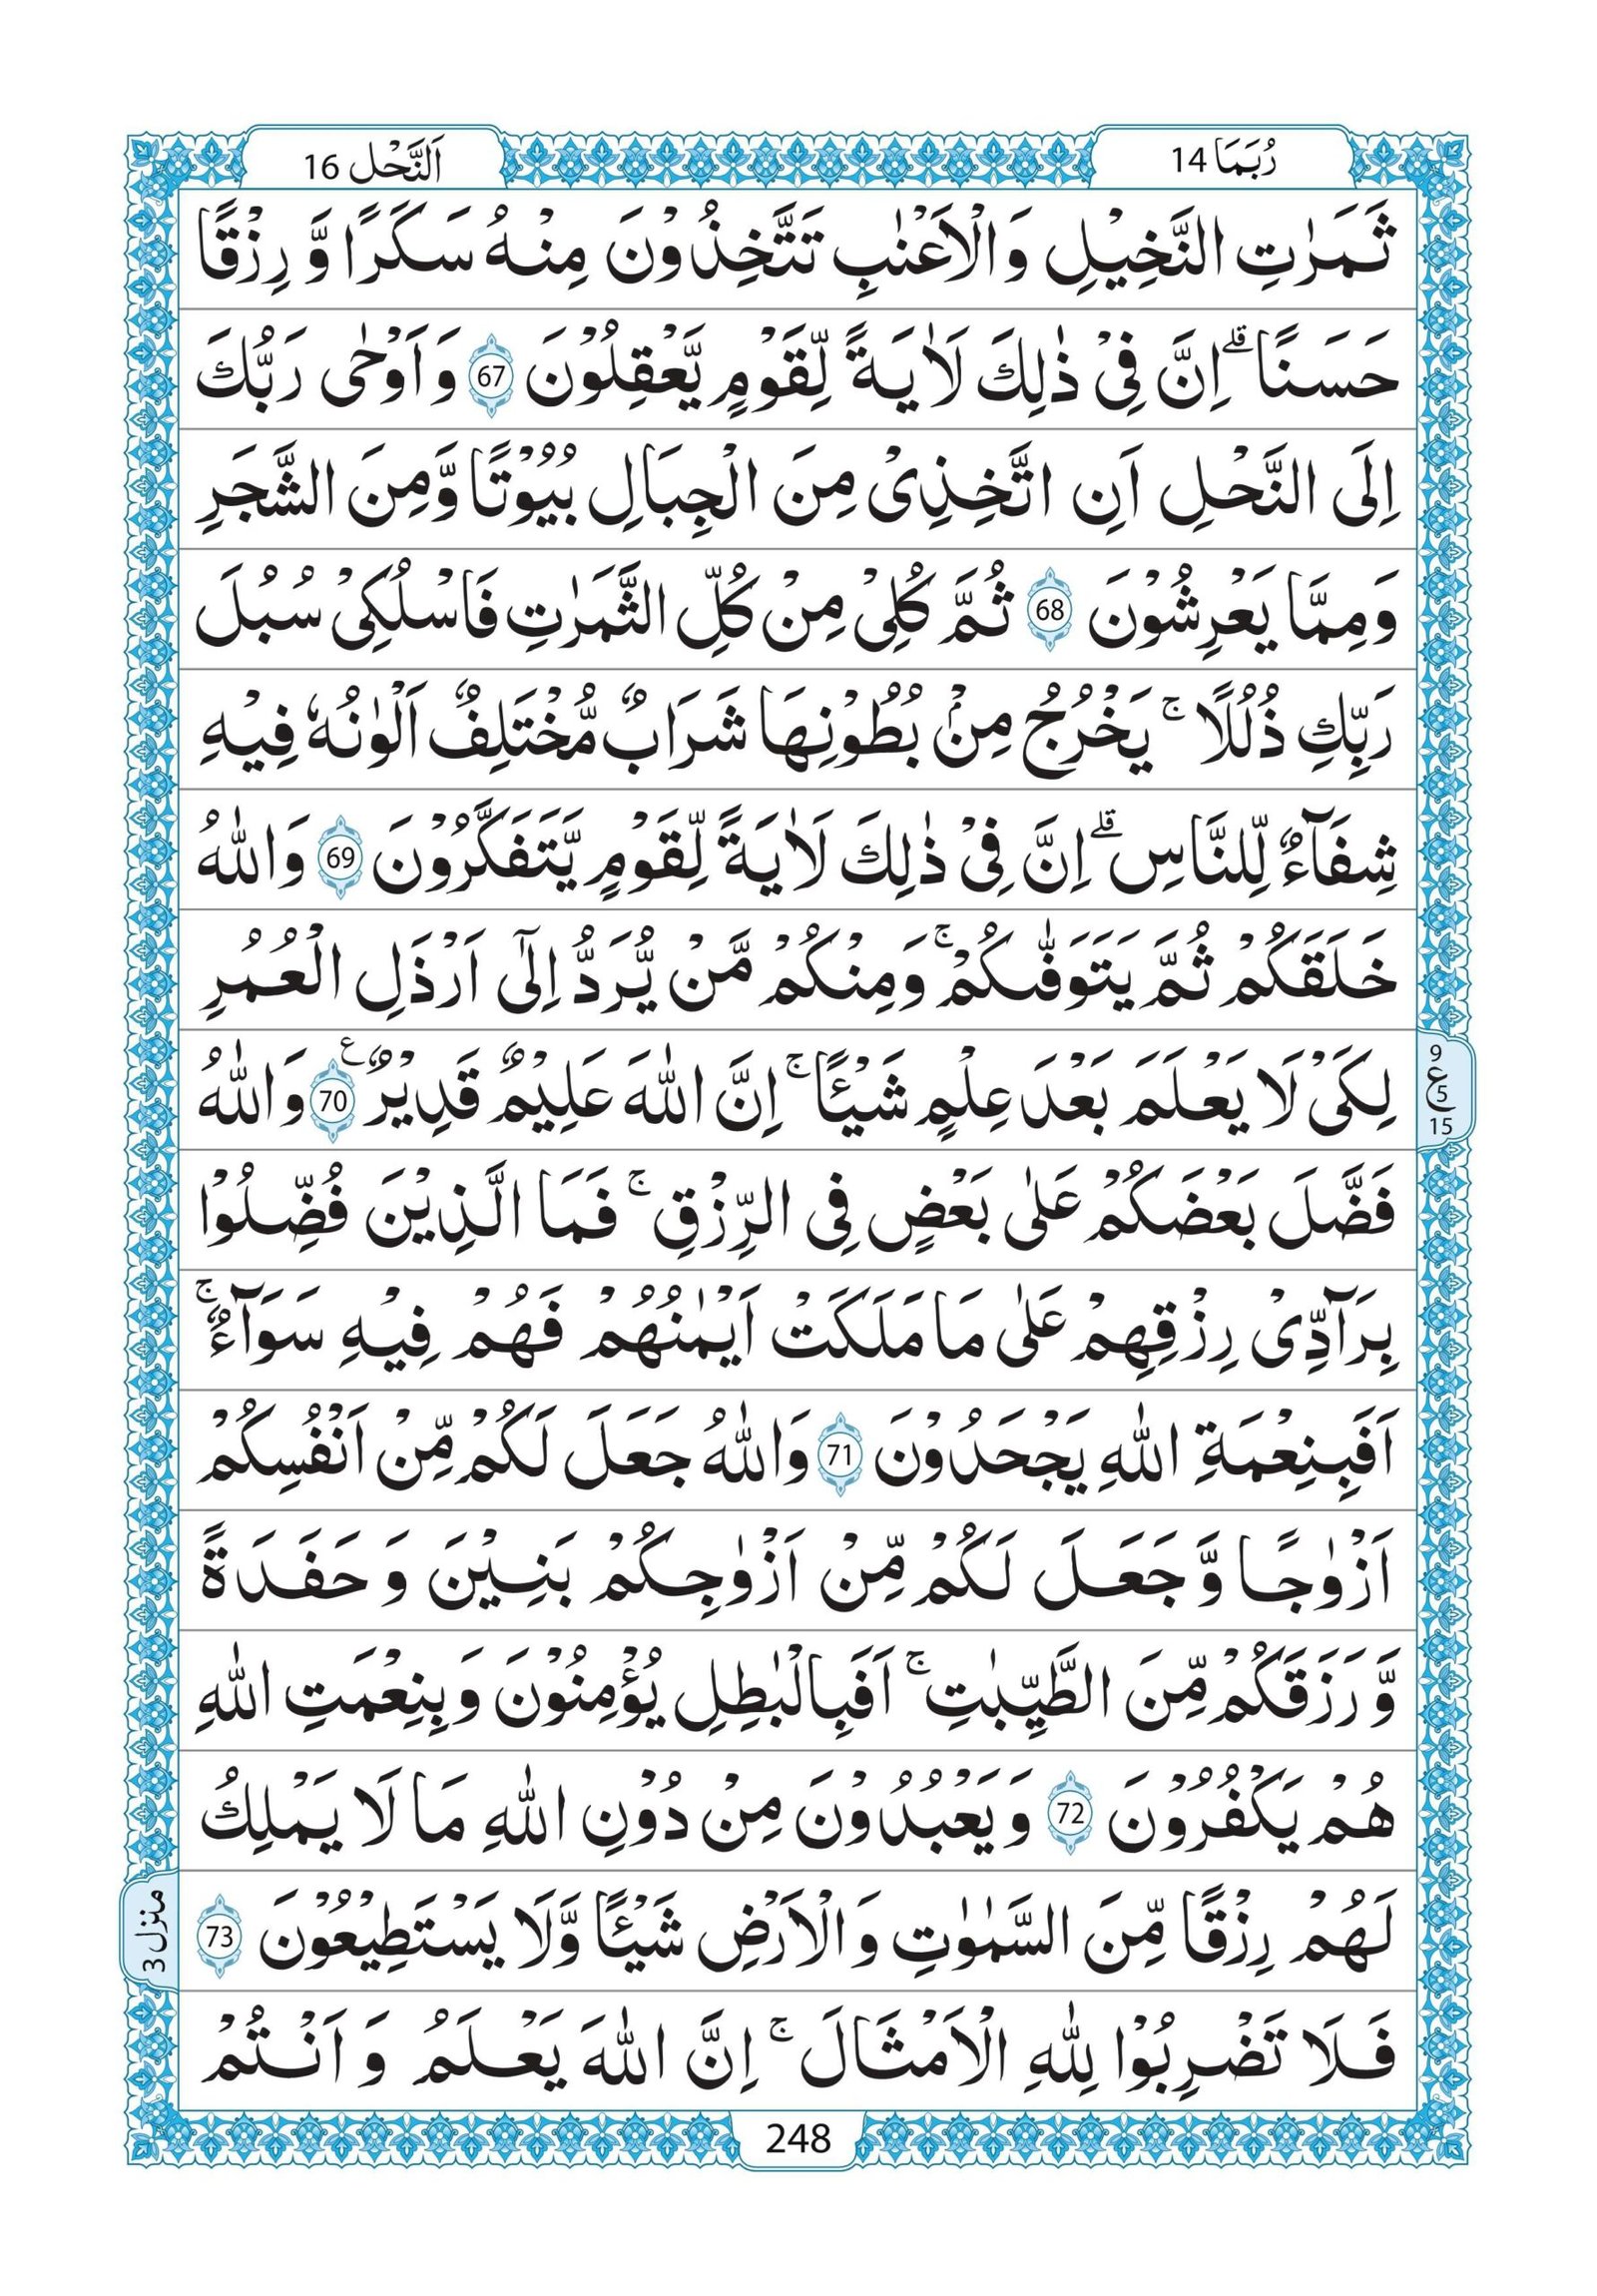 رُبَمَا 14
اَلنَّحْل 16
ثَمَرٰتِ النَّخِيْلِ وَالْاَعْنٰبِ تَتَّخِذُوْنَ مِنْهُ سَكَرًا وَّ رِزْقًا
حَسَنًا ؕ اِنَّ فِيْ ذٰلِكَ لَاٰيَةً لِّقَوْمٍ يَّعْقِلُوْنَ 67 وَاَوْحٰى رَبُّكَ
اِلَى النَّحْلِ اَنِ اتَّخِذِىْ مِنَ الْجِبَالِ بُيُوْتًا وَّمِنَ الشَّجَرِ
وَمِمَّا يَعْرِشُوْنَ 68 ثُمَّ كُلِىْ مِنْ كُلِّ الثَّمَرٰتِ فَاسْلُكِىْ سُبُلَ
رَبِّكِ ذُلُلًا ۚ يَخْرُجُ مِنْۢ بُطُوْنِهَا شَرَابٌ مُّخْتَلِفٌ اَلْوٰنُهٗ فِيْهِ
شِفَآءٌ لِّلنَّاسِ ۗ اِنَّ فِىْ ذٰلِكَ لَاٰيَةً لِّقَوْمٍ يَّتَفَكَّرُوْنَ 69 وَاللّٰهُ
خَلَقَكُمْ ثُمَّ يَتَوَفّٰىكُمْ ۚ وَمِنْكُمْ مَّنْ يُّرَدُّ اِلٰٓى اَرْذَلِ الْعُمُرِ
لِكَىْ لَا يَعْلَمَ بَعْدَ عِلْمٍ شَيْـًٔا ۚ اِنَّ اللّٰهَ عَلِيْمٌ قَدِيْرٌ 70 ع وَاللّٰهُ
9
ع
5
15
فَضَّلَ بَعْضَكُمْ عَلٰى بَعْضٍ فِى الرِّزْقِ ۚ فَمَا الَّذِيْنَ فُضِّلُوْا
بِرَآدِّىْ رِزْقِهِمْ عَلٰى مَا مَلَكَتْ اَيْمٰنُهُمْ فَهُمْ فِيْهِ سَوَآءٌ ۚ
اَفَبِنِعْمَةِ اللّٰهِ يَجْحَدُوْنَ 71 وَاللّٰهُ جَعَلَ لَكُمْ مِّنْ اَنْفُسِكُمْ
اَزْوٰجًا وَّ جَعَلَ لَكُمْ مِّنْ اَزْوٰجِكُمْ بَنِيْنَ وَ حَفَدَةً
وَّ رَزَقَكُمْ مِّنَ الطَّيِّبٰتِ ۚ اَفَبِالْبٰطِلِ يُؤْمِنُوْنَ وَبِنِعْمَتِ اللّٰهِ
هُمْ يَكْفُرُوْنَ 72 وَيَعْبُدُوْنَ مِنْ دُوْنِ اللّٰهِ مَا لَا يَمْلِكُ
لَهُمْ رِزْقًا مِّنَ السَّمٰوٰتِ وَالْاَرْضِ شَيْـًٔا وَّلَا يَسْتَطِيْعُوْنَ 73
منزل 3
فَلَا تَضْرِبُوْا لِلّٰهِ الْاَمْثَالَ ۚ اِنَّ اللّٰهَ يَعْلَمُ وَ اَنْتُمْ
248